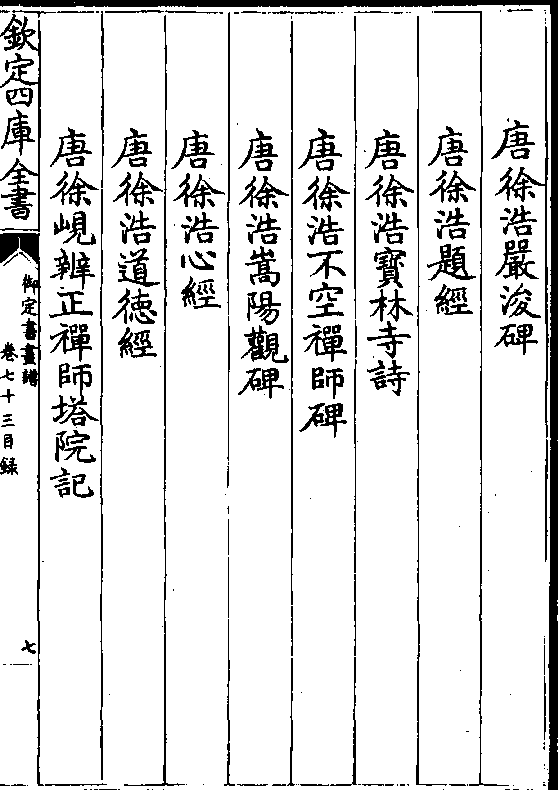 唐徐浩嚴浚碑
唐徐浩題經
唐徐浩寶林寺詩
唐徐浩不空禪師碑
唐徐浩嵩陽觀碑
唐徐浩心經
唐徐浩道德經
唐徐峴辨正禪師塔院記
欽定四庫全書
御定書畫譜
卷七十三目録
七